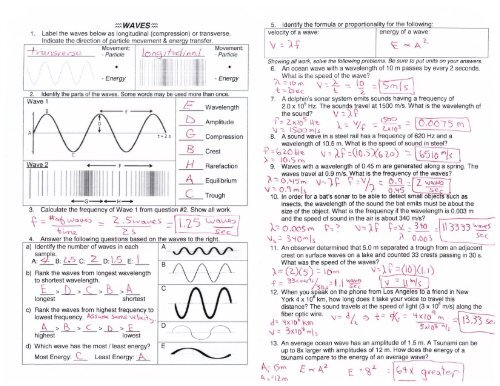 :::WAVES:::
1. Label the waves below as longitudinal (compression) or transverse.
Indicate the direction of particle movement & energy transfer.
transverse
Movement:
- Particle
- Energy
longitudinal
Movement:
- Particle
- Energy
2. Identify the parts of the waves. Some words may be used more than once.
Wave 1
t = 2 s
Wave 2
E Wavelength
D Amplitude
G Compression
B Crest
H Rarefaction
A Equilibrium
C Trough
3. Calculate the frequency of Wave 1 from question #2. Show all work.
f = # of waves / time = 2.5 waves / 2 s = 1.25 waves / sec
4. Answer the following questions based on the waves to the right.
a) Identify the number of waves in each sample.
b) Rank the waves from longest wavelength to shortest wavelength.
E > D > C > B > A
longest shortest
c) Rank the waves from highest frequency to lowest frequency. Assume same velocity
A > B > C > D > E
highest lowest
d) Which wave has the most / least energy?
Most Energy: C Least Energy: A
A
B
C
D
E
5. Identify the formula or proportionality for the following:
velocity of a wave: energy of a wave:
V = λf E ∝ A²
Showing all work, solve the following problems. Be sure to put units on your answers.
6. An ocean wave with a wavelength of 10 m passes by every 2 seconds.
What is the speed of the wave?
λ = 10m
5 m/s
7. A dolphin's sonar system emits sounds having a frequency of
2.0 x 10⁵ Hz. The sounds travel at 1500 m/s. What is the wavelength of
the sound?
f = 2x10⁵ Hz
V = 1500 m/s
0.0075 m
8. A sound wave in a steel rail has a frequency of 620 Hz and a
wavelength of 10.5 m. What is the speed of sound in steel?
f = 620 Hz V = λf = (10.5)(620) 6510 m/s
λ = 10.5m
9. Waves with a wavelength of 0.45 m are generated along a spring. The
waves travel at 0.9 m/s. What is the frequency of the waves?
λ = 0.45m V = λf f = V/λ = 0.9 / 0.45 2 waves / sec
V = 0.9 m/s
10. In order for a bat's sonar to be able to detect small objects such as
insects, the wavelength of the sound the bat emits must be about the
size of the object. What is the frequency if the wavelength is 0.003 m
and the speed of sound in air is about 340 m/s?
f = ? V = λf
V = 340 m/s
11. An observer determined that 5.0 m separated a trough from an adjacent
crest on surface waves on a lake and counted 33 crests passing in 30 s.
What was the speed of the waves?
λ = (2)(5) = 10m V = λf = (10)(1.1)
V = 11 m/s
12. When you speak on the phone from Los Angeles to a friend in New
York 4 x 10⁶ km, how long does it take your voice to travel this
distance? The sound travels at the speed of light (3 x 10⁸ m/s) along the
fiber optic wire.
13.33 sec
13. An average ocean wave has an amplitude of 1.5 m. A Tsunami can be
up to 8x larger with amplitudes of 12 m. How does the energy of a
tsunami compare to the energy of an average wave?
64x greater